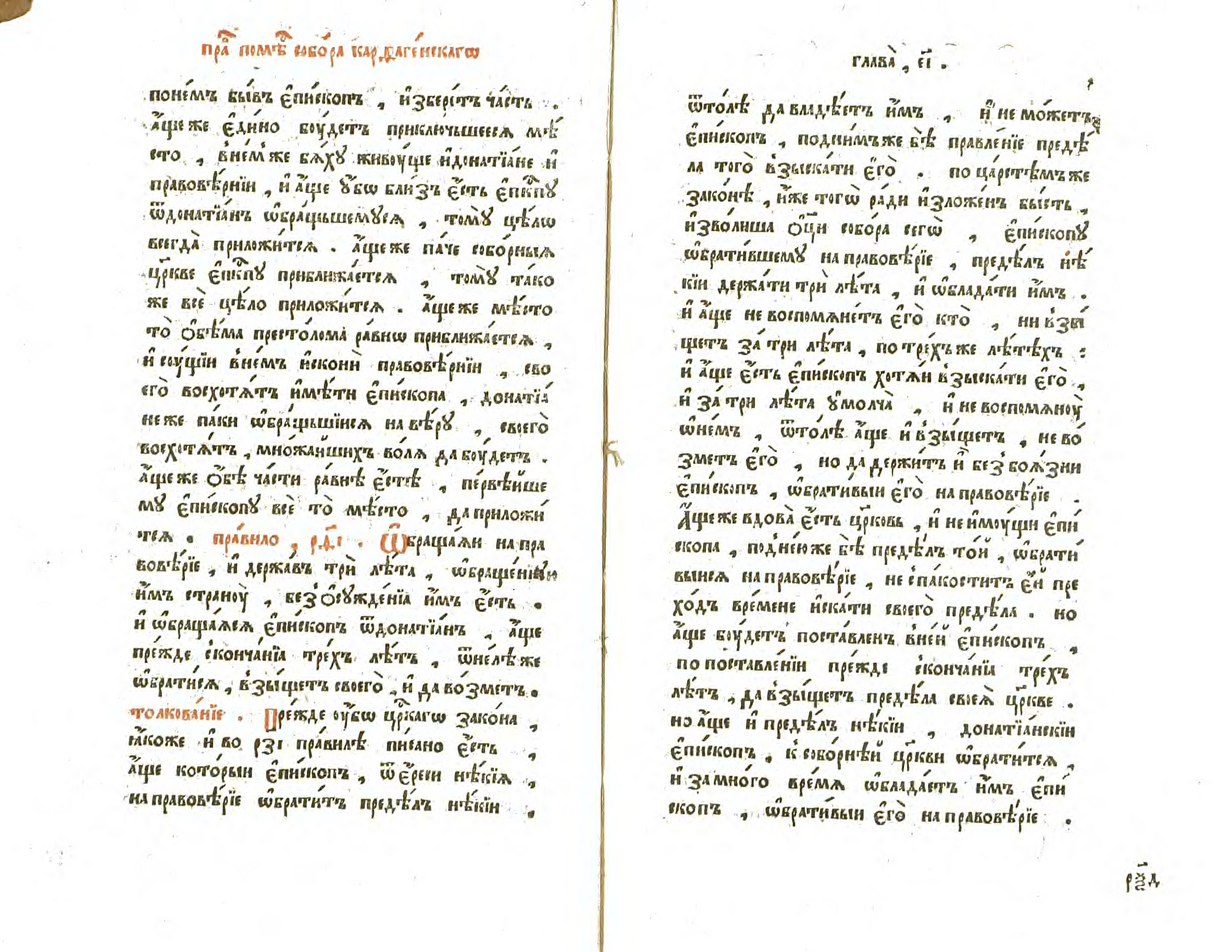 пра́ помѣ́ собо́ра карѳаге́нскагѡ
поне́мъ бы́въ є҆пи́скопъ , и҆збере́тъ ча́сть .
а҆́ще же є҆ди́но боу́детъ приклю́чьшееся мѣ́
сто , вне́мже бя́хꙋ живоу́ще и҆донатїа́не и҆
правовѣ́рнїи , и҆ а҆́ще ᲂу҆́бѡ бли́зъ є҆́сть є҆пкⷭ҇пꙋ
ѿдонатїа́нъ ѡ҆бра́щьшемꙋся , томꙋ̀ цѣ́лѡ
всегда̀ приложи́тся . а҆́ще же па́че собо́рныѧ
цр҃кве є҆пкⷭ҇пꙋ приближа́ется , томꙋ̀ та́ко
же всѐ цѣ́ло приложи́тся . а҆́ще же мѣ́сто
то̀ ѻ҆бѣ́ма престо́лома ра́внѡ приближа́ется ,
и҆ соу́щїи вне́мъ и҆́скони правовѣ́рнїи , сво
его̀ восхотя́тъ и҆мѣ́ти є҆пи́скопа , донатїа́
не же па́ки ѡ҆бра́щьшїися на вѣ́рꙋ , своего̀
восхотя́тъ , мно́жаишихъ во́ля да боу́детъ .
а҆́ще же ѻ҆́бѣ ча́сти ра́внѣ є҆́стѣ , первѣ́йше
мꙋ є҆пи́скопꙋ всѐ то̀ мѣ́сто , да приложи́
тся . пра́вило , рд҃і . Ѡ҆браща́яи на пра
вовѣ́рїе , и҆ держа́въ трѝ лѣ́та , ѡ҆браще́ннꙋю
и҆́мъ странꙋ̀ , без ѻ҆сꙋжде́нїа и҆́мъ є҆́сть .
и҆ ѡ҆браща́яся є҆пи́скопъ ѿдонатїа́нъ , а҆́ще
пре́жде сконча́нїа тре́хъ лѣ́тъ , ѿне́лѣ же
ѡ҆брати́ся , взы́щетъ своего̀ , и҆ да во́зметъ .
толкова́нїе . Пре́жде оу҆́бѡ цр҃кагѡ зако́на ,
ꙗ҆́коже и҆ во рзі пра́вилѣ пи́сано є҆́сть ,
а҆́ще кото́рыи є҆пи́скопъ , ѿ є҆́реси нѣ́кїя ,
на правовѣ́рїе ѡ҆брати́тъ предѣ́лъ нѣ́кїи ,
глава̀ , є҃і .
ѿто́лѣ да владѣ́етъ и҆́мъ , и҆ не мо́жетъ
є҆пи́скопъ , подни́мъже бѣ̀ правле́нїе предѣ́
ла того̀ взыска́ти є҆го̀ . по ца́рстѣмъ же
зако́нѣ , и҆́же тогѡ̀ ра́ди и҆зло́женъ бы́сть ,
и҆зво́лиша ѻ҆ц҃и собо́ра сегѡ̀ , є҆пи́скопꙋ
ѡ҆брати́вшемꙋ на правовѣ́рїе , предѣ́лъ нѣ́
кїи держа́ти трѝ лѣ́та , и҆ ѡ҆блада́ти и҆́мъ .
и҆ а҆́ще не воспомяне́тъ є҆го̀ кто̀ , ни взы́
щетъ за́ три лѣ́та , по тре́хъ же лѣ́тѣхъ :
и҆ а҆́ще є҆́сть є҆пи́скопъ хотя́и взыска́ти є҆го̀ ,
и҆ за́ три лѣ́та ᲂу҆молча̀ , и҆ не воспомяноу̀
ѡ҆не́мъ , ѿто́лѣ а҆́ще и҆ взы́щетъ , не во́
зметъ є҆го̀ , но да держи́тъ и҆̀ без боя́зни
є҆пи́скопъ , ѡ҆брати́выи є҆го̀ на правовѣ́рїе .
А҆́ще же вдова̀ є҆́сть цр҃ковь , и҆ не и҆моу́щи є҆пи́
скопа , подне́юже бѣ̀ предѣ́лъ то́й , ѡ҆брати́
выися на правовѣ́рїе , не спа́коститъ є҆́й пре
хо́дъ вре́мене и҆ска́ти своего̀ предѣ́ла . но
а҆́ще боу́детъ поста́вленъ вне́й є҆пи́скопъ ,
по поставле́нїи пре́жде сконча́нїа тре́хъ
лѣ́тъ , да взы́щетъ предѣ́ла своея̀ цр҃кве .
но а҆́ще и҆ предѣ́лъ нѣ́кїи , донатїа́нскїи
є҆пи́скопъ , к собо́рнѣй цр҃кви ѡ҆брати́тся ,
и҆ за мно́го вре́мя ѡ҆блада́етъ и҆́мъ є҆пи́
скопъ , ѡ҆брати́выи є҆го̀ на правовѣ́рїе .